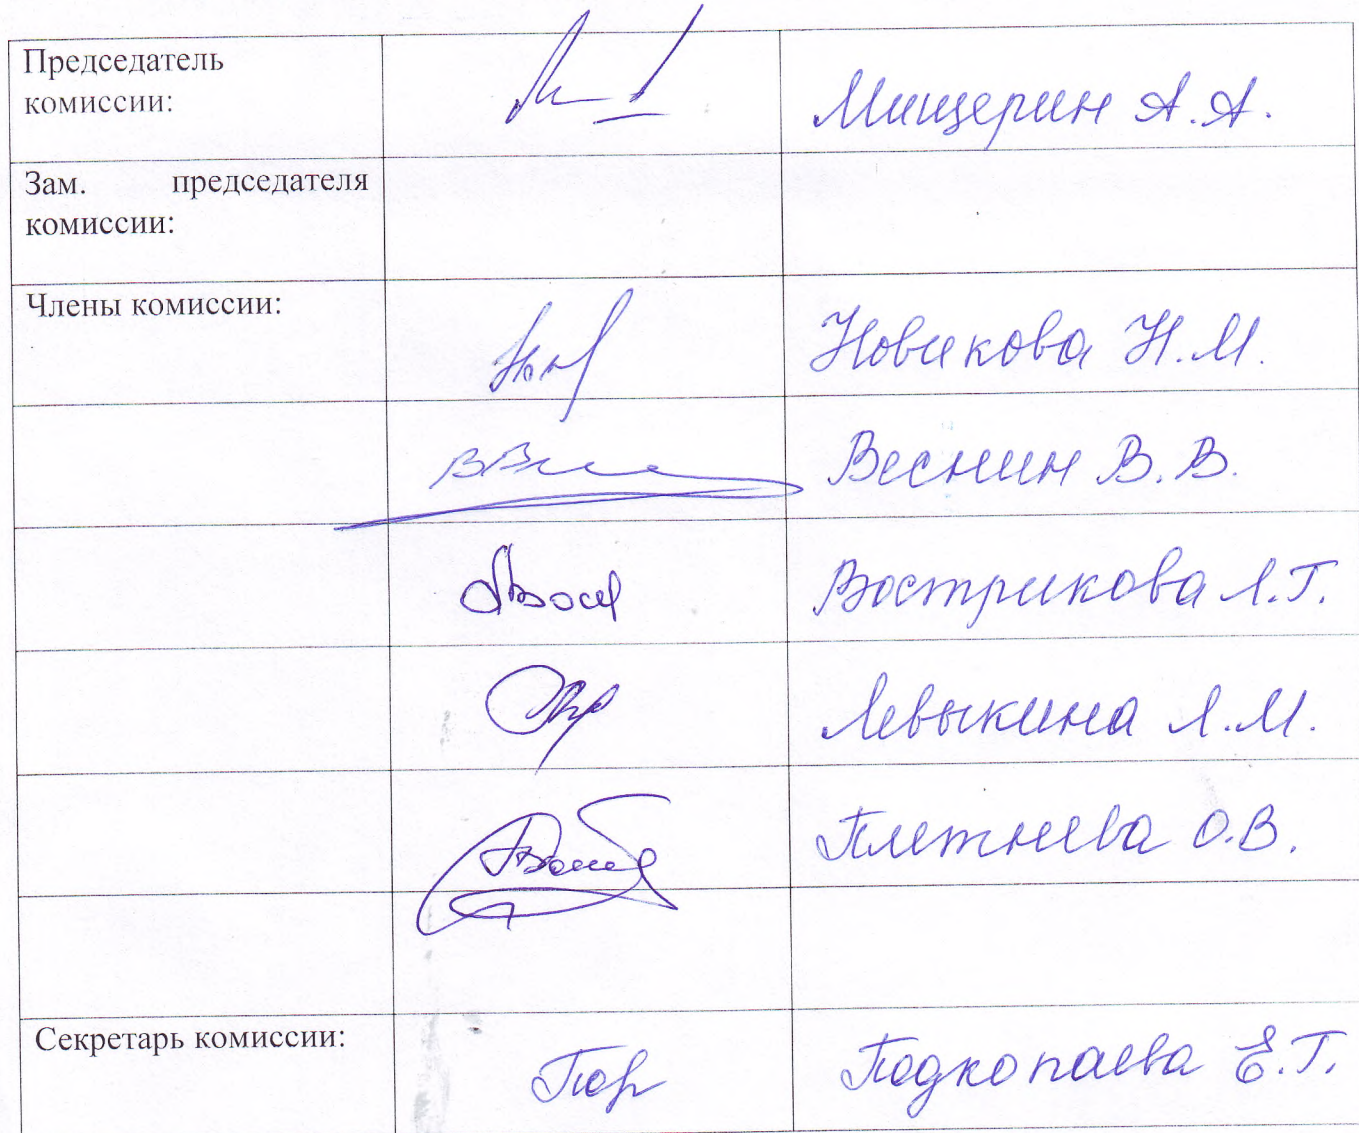 Председатель
комиссии:
Мищерин А.А.
Зам. председателя
комиссии:
Члены комиссии:
Новикова Н.М.
Веснин В.В.
Вострикова Л.Г.
Левыкина Л.М.
Плетнева О.В.
Секретарь комиссии:
Подкопаева Е.Г.